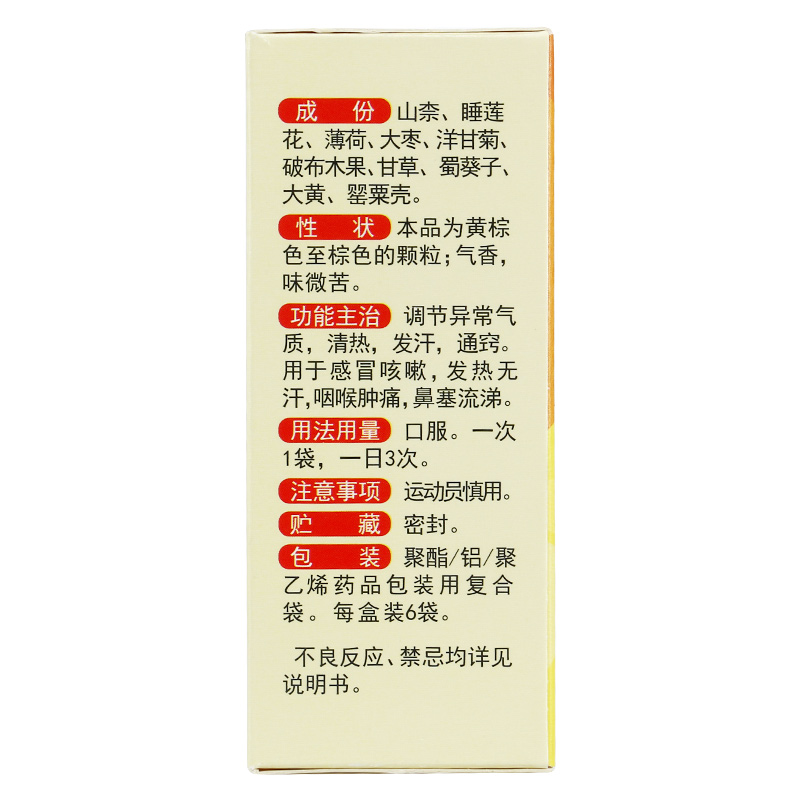 成 份 山柰、睡莲
花、薄荷、大枣、洋甘菊、
破布木果、甘草、蜀葵子、
大黄、罂粟壳。
性 状 本品为黄棕
色至棕色的颗粒;气香,
味微苦。
功能主治 调节异常气
质,清热,发汗,通窍。
用于感冒咳嗽,发热无
汗,咽喉肿痛,鼻塞流涕。
用法用量 口服。一次
1袋,一日3次。
注意事项 运动员慎用。
贮 藏 密封。
包 装 聚酯/铝/聚
乙烯药品包装用复合
袋。每盒装6袋。
不良反应、禁忌均详见
说明书。